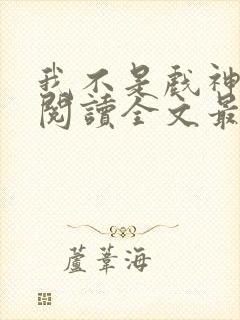 我不是戲神
閱讀全文最
蘆葦海